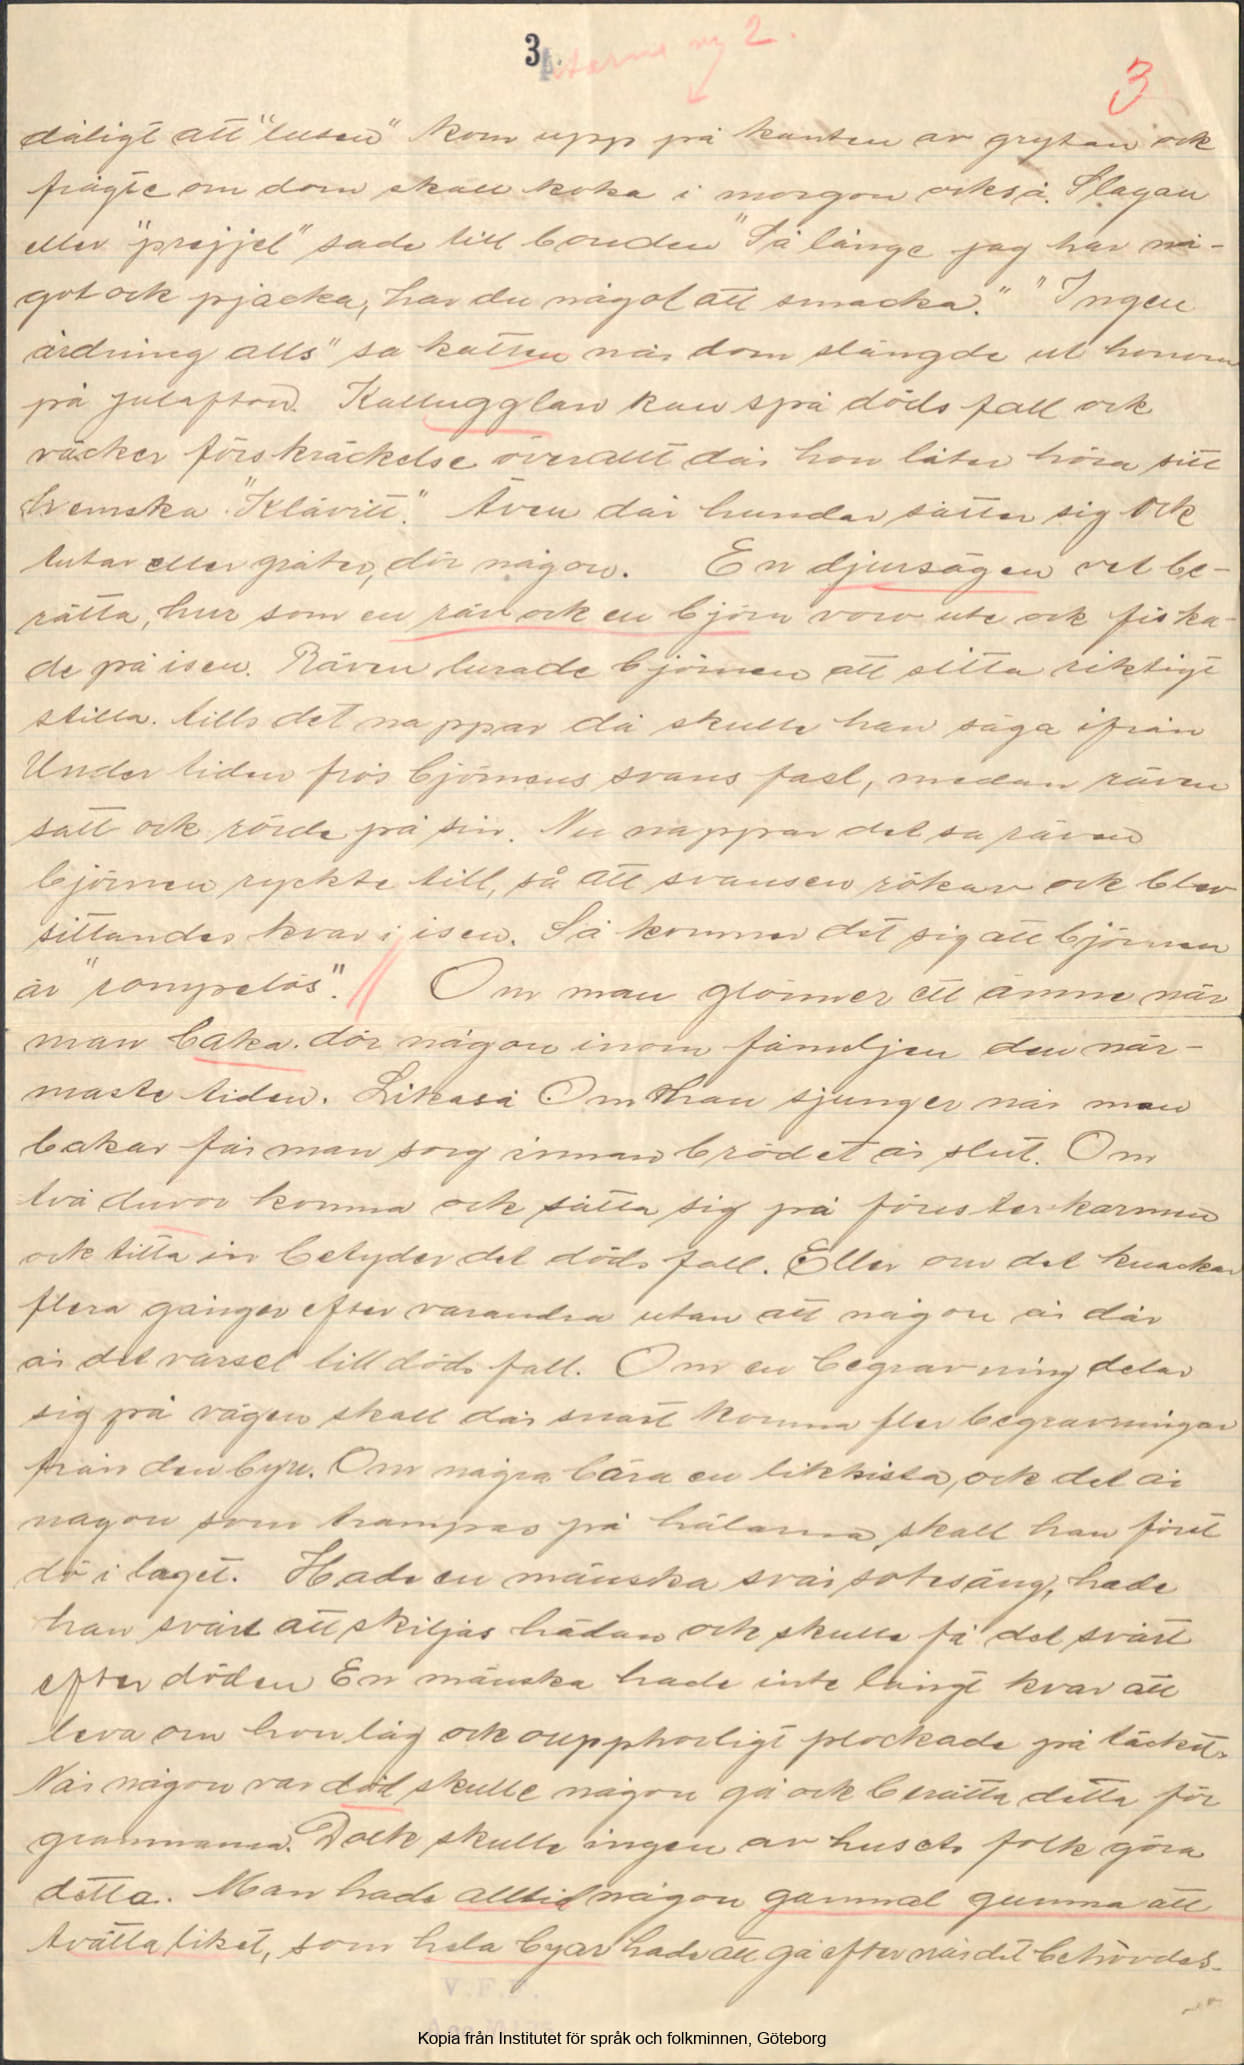 3
ny 2.
3
dåligt att "lusen" kom upp på kanten av grytan ock
frågte om dom skall koka i morgon också. Slagan
eller "prejjel" sade till bonden "Så länge jag har nå-
got ock pjacka, har du något att smacka." "Ingen
årdning alls" sa katten när dom slängde ut honom
på julafton. Kattugglan kan spå dödsfall ock
väcker förskräckelse överallt där hon låter höra sitt
hemska "Klävitt." Även där hundar sätter sig ock
tutar eller gråter, dör någon. En djursägen vet be-
rätta, hur som en räv ock en björn voro ute ock fiska-
de på isen. Räven lurade björnen att sitta riktigt
stilla. tills det nappar då skulle han säga ifrån
Under tiden frös björnens svans fast, medan räven
satt ock rörde på sin. Nu nappar det sa räven
björnen ryckte till, så att svansen rök av ock blev
sittandes kvar i isen. Så kommer det sig att björnen
är "rompelös". Om man glömmer ett ämne när
man baka. dör någon inom familjen den när-
maste tiden. Likaså Om man sjunger när man
bakar får man sorg innan brödet är slut. Om
två duvor komma ock sätta sig på fönsterkarmen
ock titta in betyder det dödsfall. Eller om det knackar
flera gånger efter varandra utan att någon är där
är det varsel till dödsfall. Om en begravning delar
sig på vägen skall där snart komma fler begravningar
från den byn. Om några bära en likkista, ock det är
nagon som trampas på hälarna skall han först
dö i laget. Hade en mänska svår sotesäng, hade
han svårt att skiljas hädan ock skulle få det svårt
efter döden En mänska hade inte långt kvar att
leva om hon låg ock oupphörligt plockade på täcket.
När någon var död skulle någon gå ock berätta detta för
grannarna. Dock skulle ingen av husets folk göra
detta. Man hade alltid någon gammal gumma att
tvätta liket, som hela byar hade att gå efter när det behövdes.
V.F.F.
Kopia från Institutet för språk och folkminnen, Göteborg